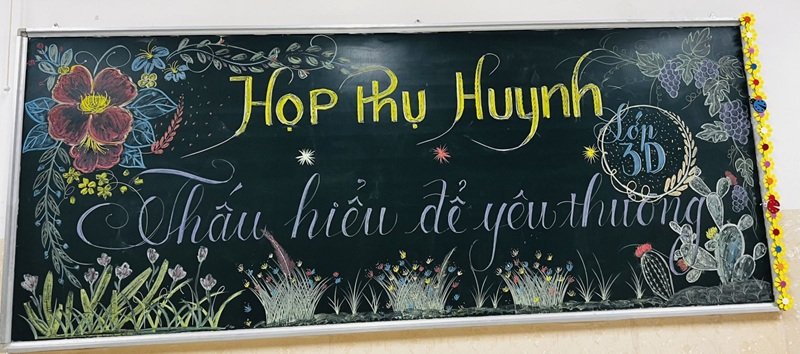 Họp Phụ Huynh
Lớp
3D
Thấu hiểu để yêu thương